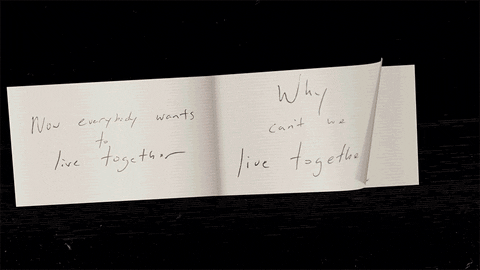 Now everybody wants
to
live together
Why
can't we
live togethe